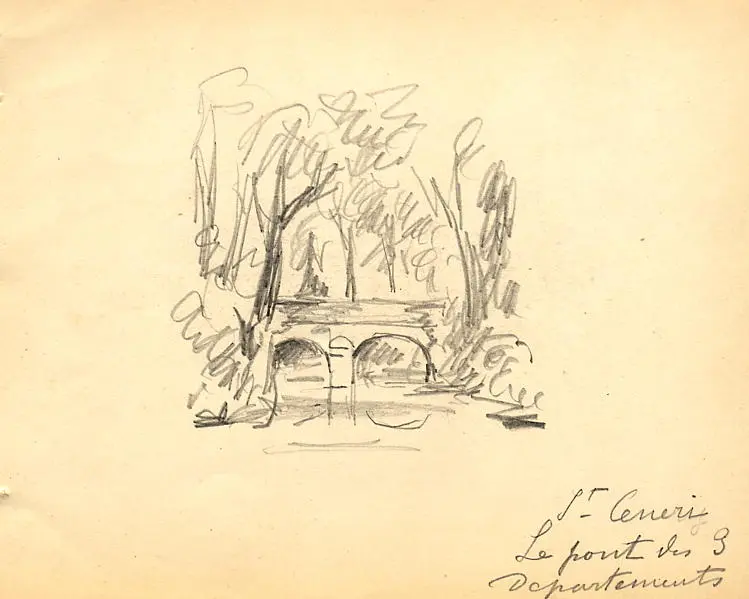 St Ceneri
Le pont des 3
Departements